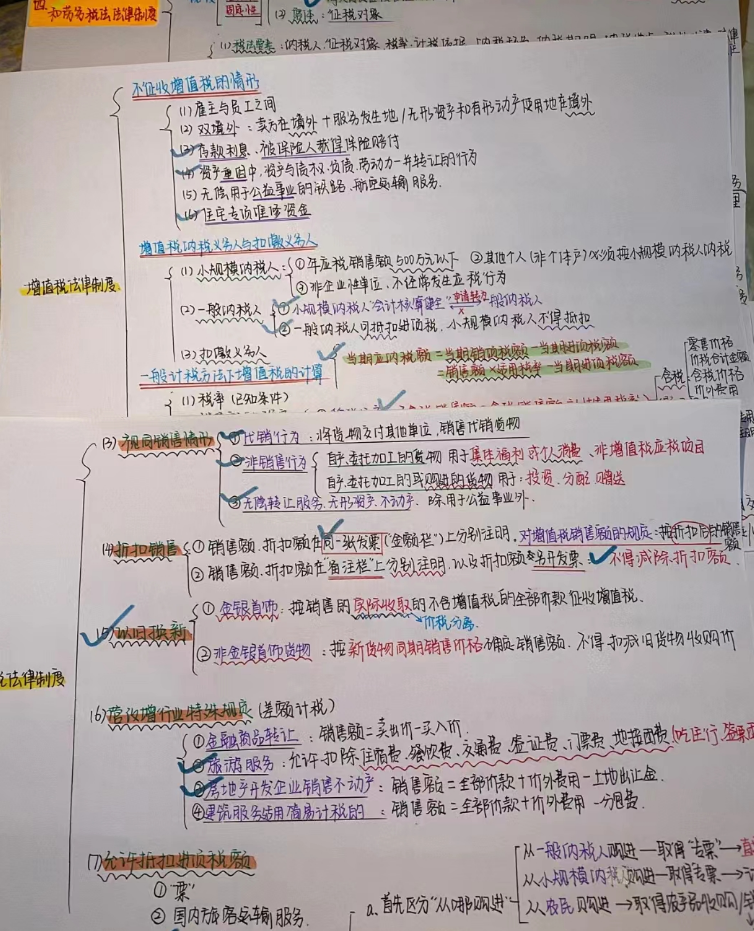 四、
和劳务税法法律制度
(2) 税法：征税对象
(1) 税法要素：纳税人、征税对象、税率、计税依据、
增值税法律制度
不征收增值税的情形
(1) 雇主与员工之间
(2) 双境外：卖方在境外＋服务发生地/无形资产和有形动产使用地在境外
(3) 存款利息、被保险人获得保险赔付
(4) 资产重组中，资产与债权、负债、劳动力一并转让的行为
(5) 无偿用于公益事业的铁路、航空运输服务.
(6) 住宅专项维修资金
增值税纳税义务人与扣缴义务人
(1) 小规模纳税人：① 年应税销售额500万元以下 ② 其他个人(非个体户)必须按小规模纳税人纳税
③ 非企业性单位、不经常发生应税行为
(2) 一般纳税人 ① 小规模纳税人会计核算健全“申请转为”一般纳税人
② 一般纳税人可抵扣进项税，小规模纳税人不得抵扣
(3) 扣缴义务人
当期应纳税额＝当期销项税额－当期进项税额
＝销售额×适用税率－当期进项税额
一般计税方法下增值税的计算
(1) 税率 (已知条件)
含税
零售价格
价税合计金额
含税价格
价外费用
税法律制度
(3) 视同销售情形
① 代销行为：将货物交付其他单位，销售代销货物
② 非销售行为
自产、委托加工的货物 用于集体福利或个人消费、非增值税应税项目
自产、委托加工的或购进的货物用于：投资、分配、赠送
③ 无偿转让服务、无形资产、不动产，除用于公益事业外.
(4) 折扣销售
① 销售额、折扣额在同一张发票(“金额栏”)上分别注明，对增值税销售额的规定：按折扣后的销售额
② 销售额、折扣额在“备注栏”上分别注明，以及折扣额另开发票 不得减除折扣额.
(5) 以旧换新
① 金银首饰：按销售的实际收取的不含增值税的全部价款征收增值税.
价税分离
② 非金银首饰货物：按新货物同期销售价格确定销售额，不得扣减旧货物收购价
(6) 营改增行业特殊规定 (差额计税)
① 金融商品转让：销售额＝卖出价－买入价.
② 旅游服务：允许扣除住宿费、餐饮费、交通费、签证费、门票费、地接团费(吃住行、签票
③ 房地产开发企业销售不动产：销售额＝全部价款＋价外费用－土地出让金.
④ 建筑服务适用简易计税的：销售额＝全部价款＋价外费用－分包费.
(7) 允许抵扣进项税额
① “票”
② 国内旅客运输服务.
a. 首先区分“从哪购进”
从一般纳税人购进—取得“专票”→
从小规模纳税人购进—取得专票→
从农民购进→取得农产品收购/